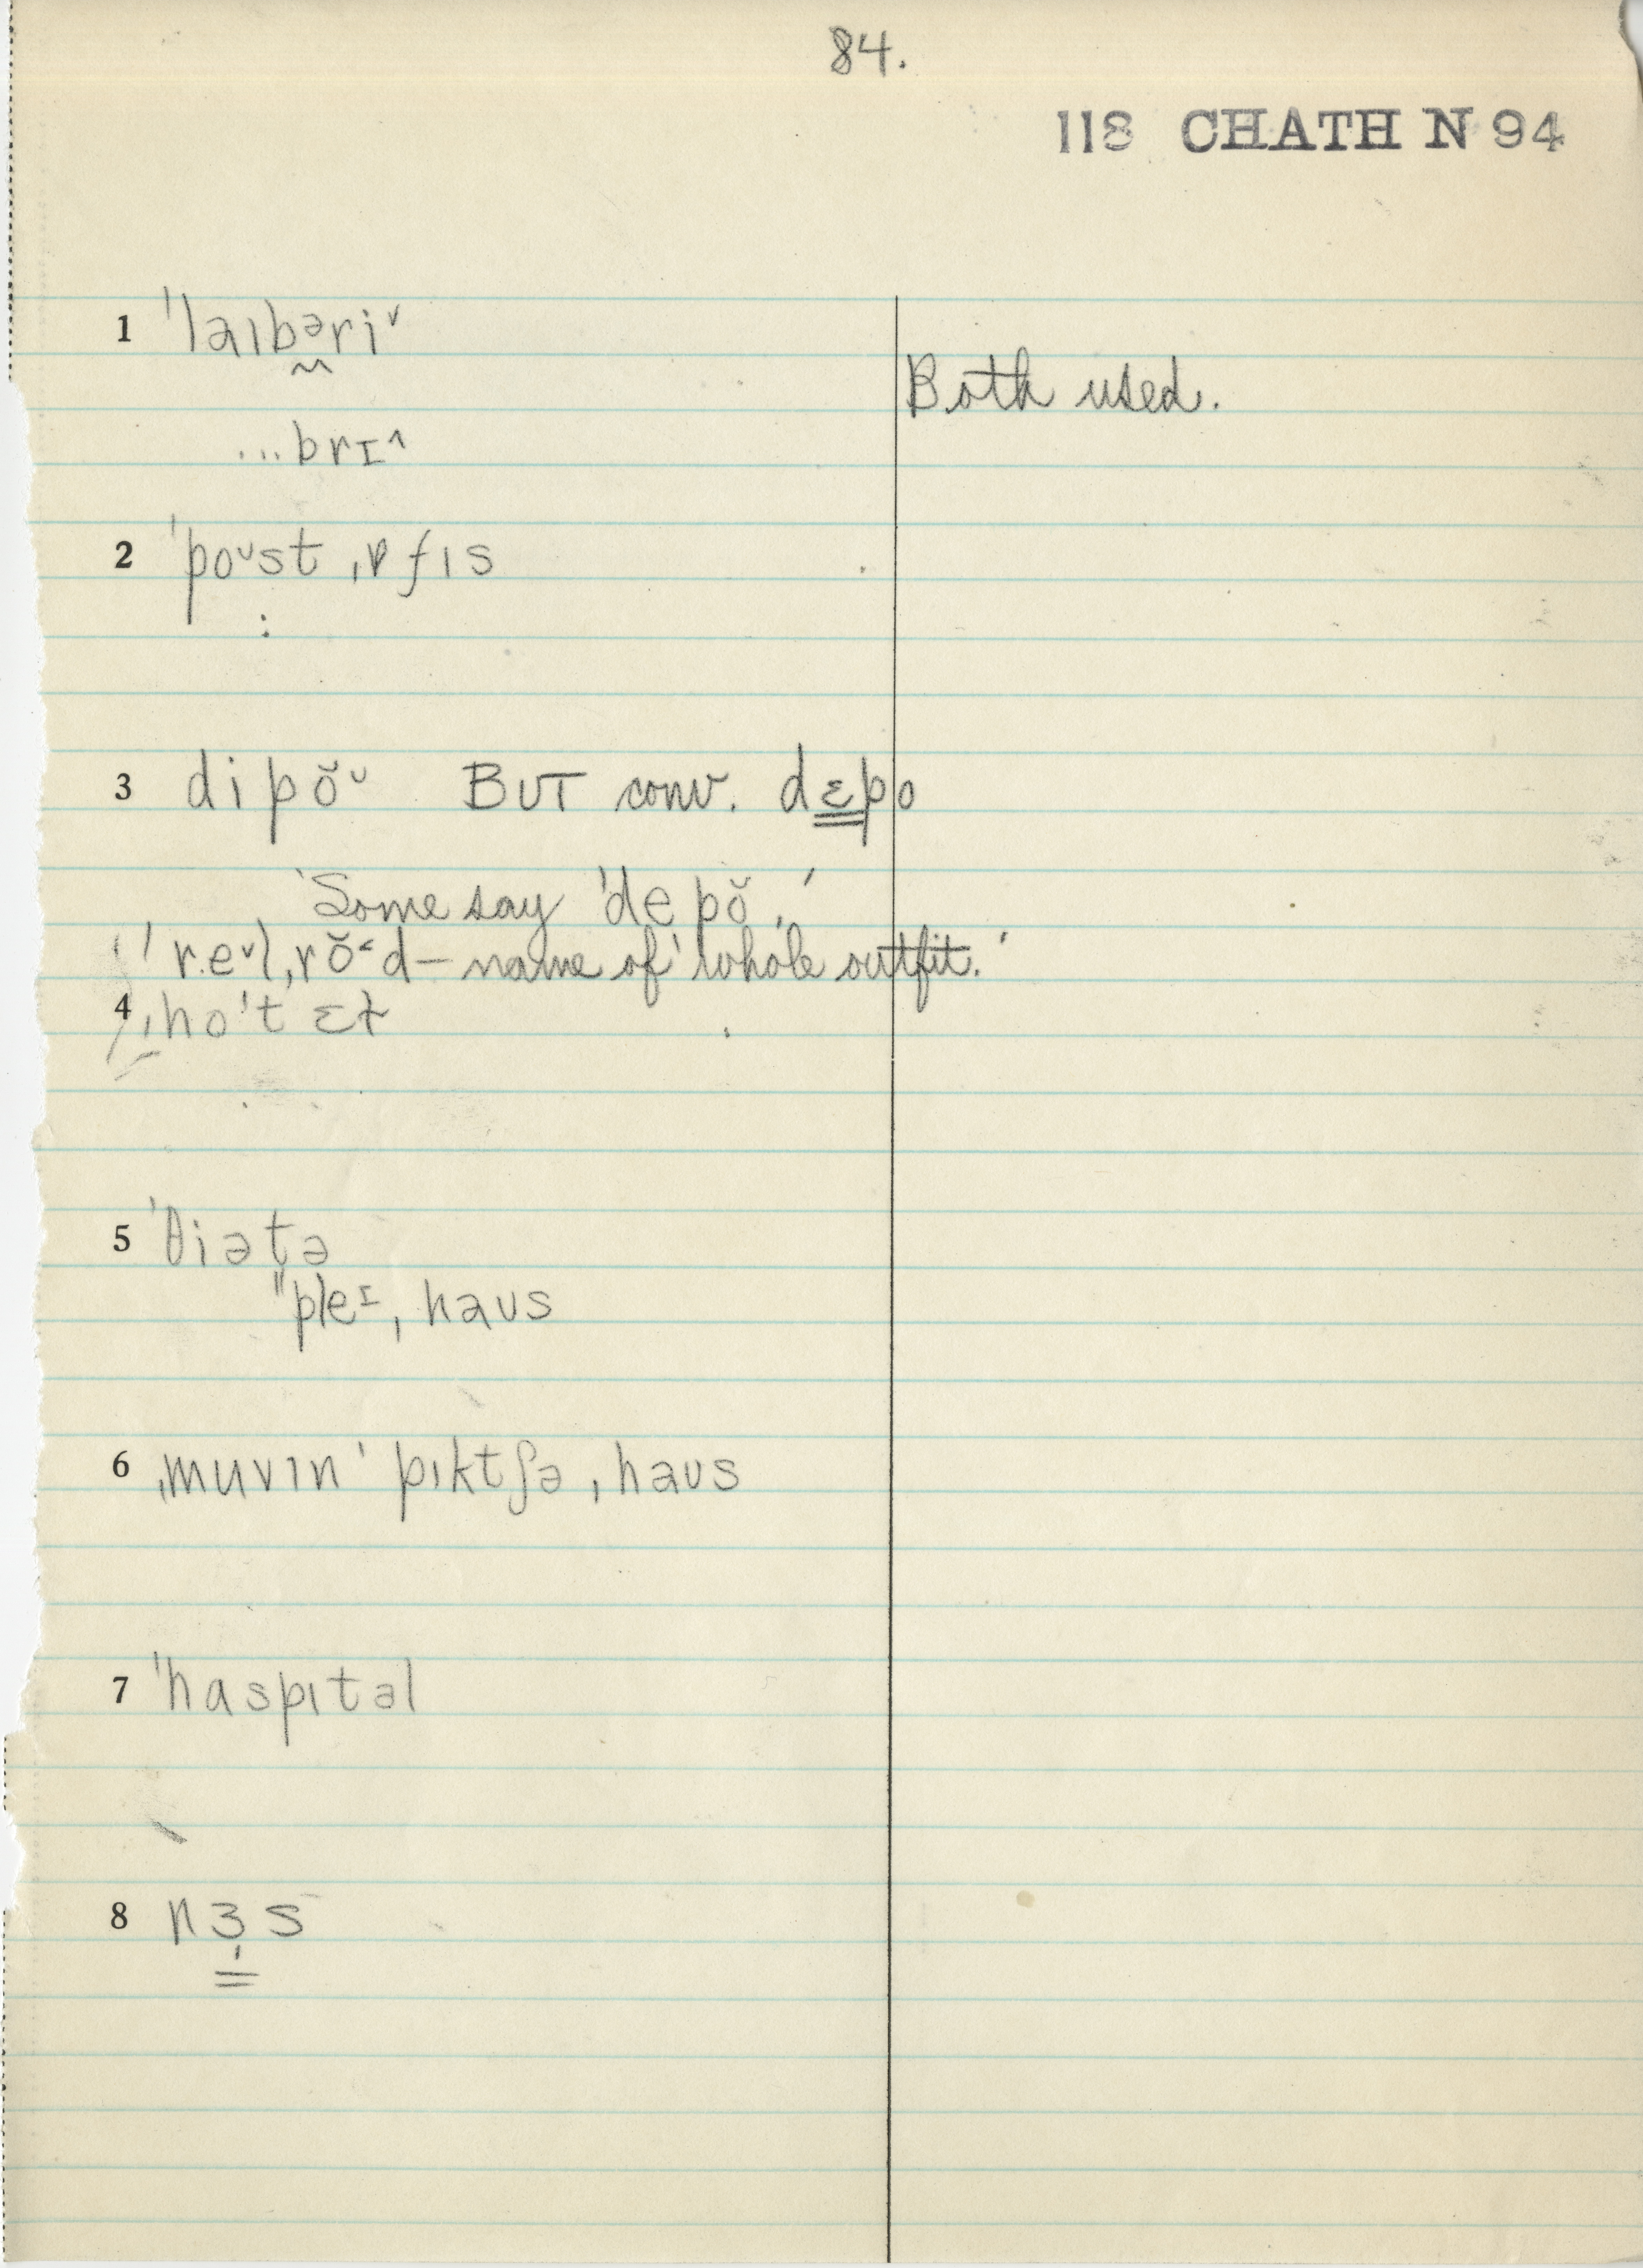 84.
118 CHATH N 94
1 ˈlaɪbəriˇ
Both used.
...brɪ^
2 ˈpoᵛst ˌɒfɪs
3 dipŏᵛ BUT conv. dɛpo
'Some say ˈdepŏ.'
ˈreˇlˌrŏ˂d – name of 'whole outfit.'
4 ˌhoˈtɛɫ
5 ˈθiətə
"pleᶦˌhaus
6 ˌmuvɪnˈpɪktʃəˌhaʊs
7 ˈhaspɪtəl
8 nɜs